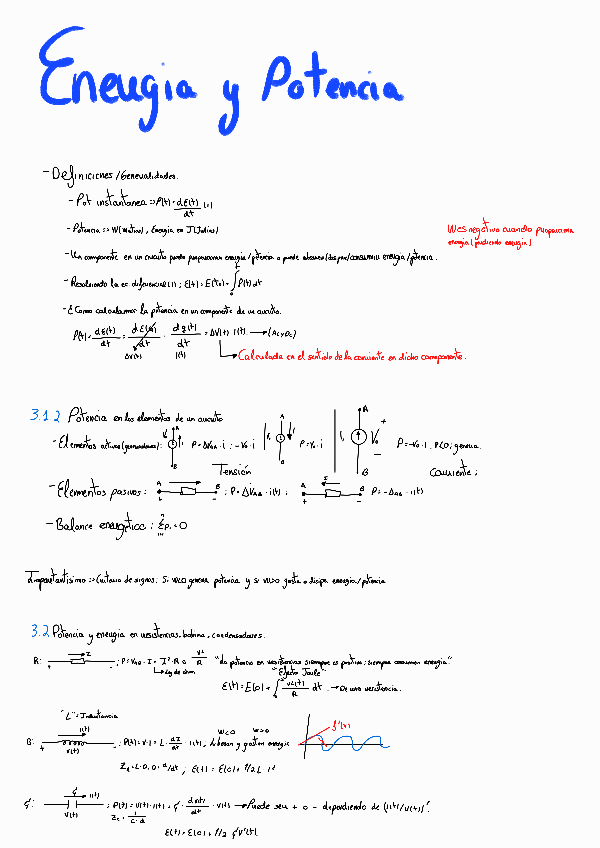 Energia y Potencia
- Definiciones/Generalidades.
- Pot instantanea => P(t) = dE(t)/dt (1)
- Potencia => W (Watios), Energia en J (Julios)
W es negativo cuando proporciona energia (perdiendo energia)
- Un componente en un circuito puede proporcionar energia/potencia o puede absorver/disipar/consumir energia/potencia.
- Resolviendo la ec diferencial (1); E(t) = E(t0) + ∫ P(t) dt
- Como calculamos la potencia en un componente de un circuito.
P(t) = dE(t)/dt = dE(t)/dt · dq(t)/dt = ΔV(t) i(t) → (AC y DC)
ΔV(t) i(t)
Calculada en el sentido de la corriente en dicho componente.
3.1.2 Potencia en los elementos de un circuito
- Elementos activos (generadores): P = ΔVAB · i ; -V0 · i P = V0 · i P = -V0 · I , P<0; genera.
Tensión Corriente;
- Elementos pasivos: A B ; P = ΔVAB · i(t) ; A B P = -ΔAB · i(t)
- Balance energético: Σ Pi = 0
Importantisimo => Criterio de signos: Si W<0 genera potencia y si W>0 gasta o disipa energia/potencia
3.2 Potencia y energia en resistencias, bobina, condensadores.
R: + - ; P = VAB · I = I² · R o V²/R "La potencia en resistencias siempre es positiva; siempre consumen energia."
Ley de ohm "Efecto Joule"
E(t) = E(0) + ∫ V²(t)/R dt → De una resistencia.
"L" = Inductancia
B: + i(t) - V(t) ; P(t) = V · I = L · di/dt · i(t), liberan y gastan energia W<0 W>0 f'(x)
E(t) = E(0) + 1/2 L · i²
C: i(t) V(t) : P(t) = V(t) · i(t) = C · dv(t)/dt · V(t) → Puede ser + o - dependiendo de (i(t)/V(t))
E(t) = E(0) + 1/2 C V²(t)